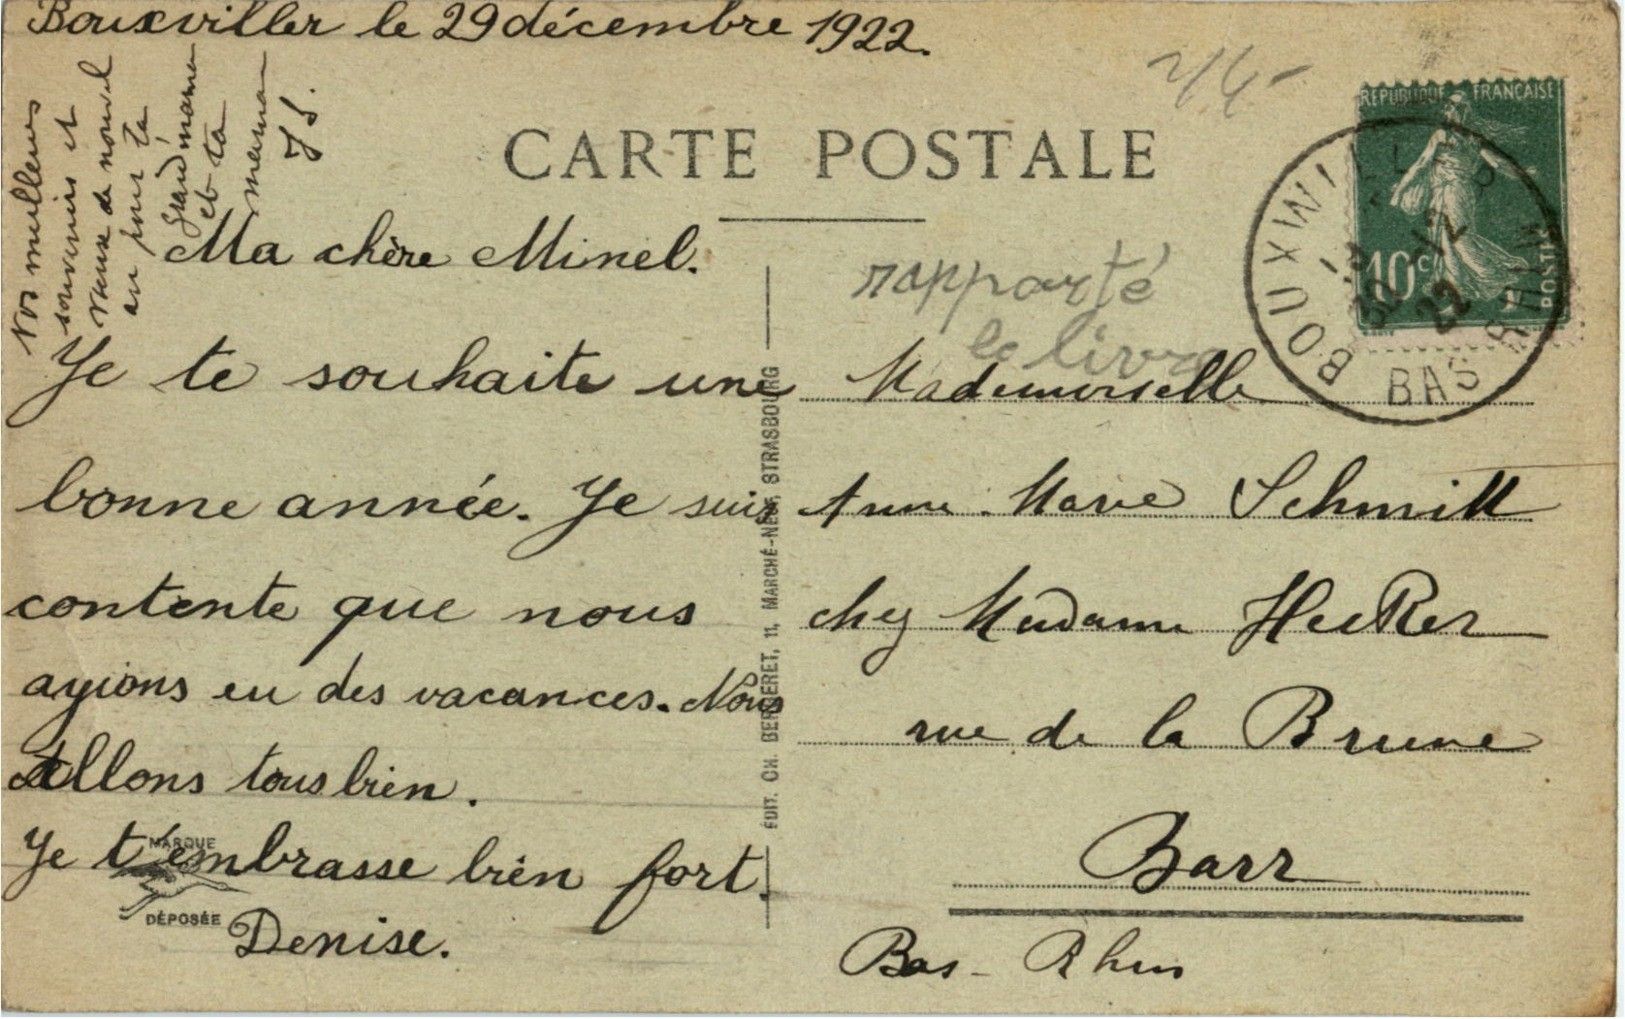 Bouxviller le 29 décembre 1922.
Nos meilleurs
souvenirs et
vœux de nouvel
an pour ta
grand'maman
et ta
maman
2/4-
CARTE POSTALE
REPUBLIQUE FRANÇAISE
10c
POSTES
BOUXWILLER
30 -12
22
BAS RHIN
Ma chère Minel.
Je te souhaite une
bonne année. Je suis
contente que nous
ayions eu des vacances. Nous
allons tous bien.
Je t'embrasse bien fort.
Denise.
MARQUE
DÉPOSÉE
ÉDIT. CH. BERGERET, 11, MARCHÉ-NEUF, STRASBOURG
rapporté
le livre
Mademoiselle
Anne-Marie Schmitt
chez Madame Hecker
rue de la Brune
Barr
Bas-Rhin